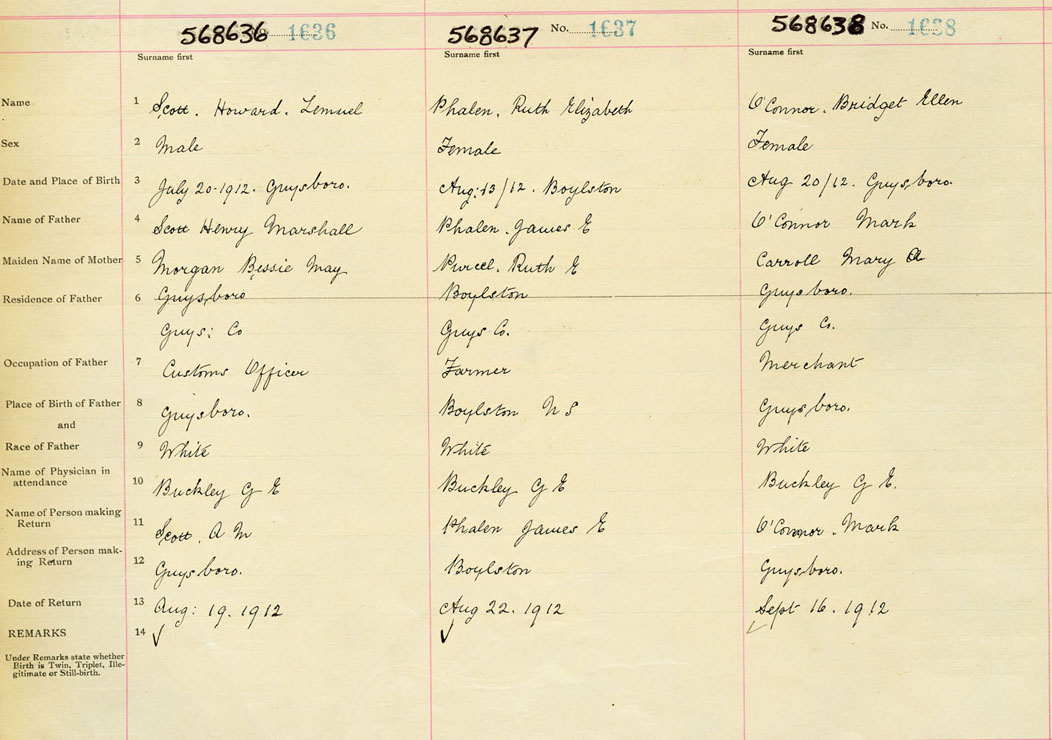 568636 1636 568637 No. 1637 568638 No. 1638
Surname first Surname first Surname first
Name 1 Scott. Howard. Lemuel Phalen. Ruth Elizabeth O'Connor. Bridget Ellen
Sex 2 Male Female Female
Date and Place of Birth 3 July 20-1912. Guysboro. Aug: 13/12. Boylston Aug 20/12. Guysboro.
Name of Father 4 Scott Henry Marshall Phalen. James E O'Connor Mark
Maiden Name of Mother 5 Morgan Bessie May Purcel. Ruth E Carroll Mary A
Residence of Father 6 Guysboro Boylston Guysboro.
Guys: Co Guys Co. Guys Co.
Occupation of Father 7 Customs Officer Farmer Merchant
Place of Birth of Father 8 Guysboro. Boylston N S Guysboro.
and
Race of Father 9 White White White
Name of Physician in
attendance 10 Buckley G E Buckley G E Buckley G E.
Name of Person making
Return 11 Scott. A M Phalen James E O'Connor. Mark
Address of Person mak-
ing Return 12 Guysboro. Boylston Guysboro.
Date of Return 13 Aug: 19. 1912 Aug 22. 1912 Sept 16. 1912
REMARKS 14 ✓ ✓ ✓
Under Remarks state whether
Birth is Twin, Triplet, Ille-
gitimate or Still-birth.